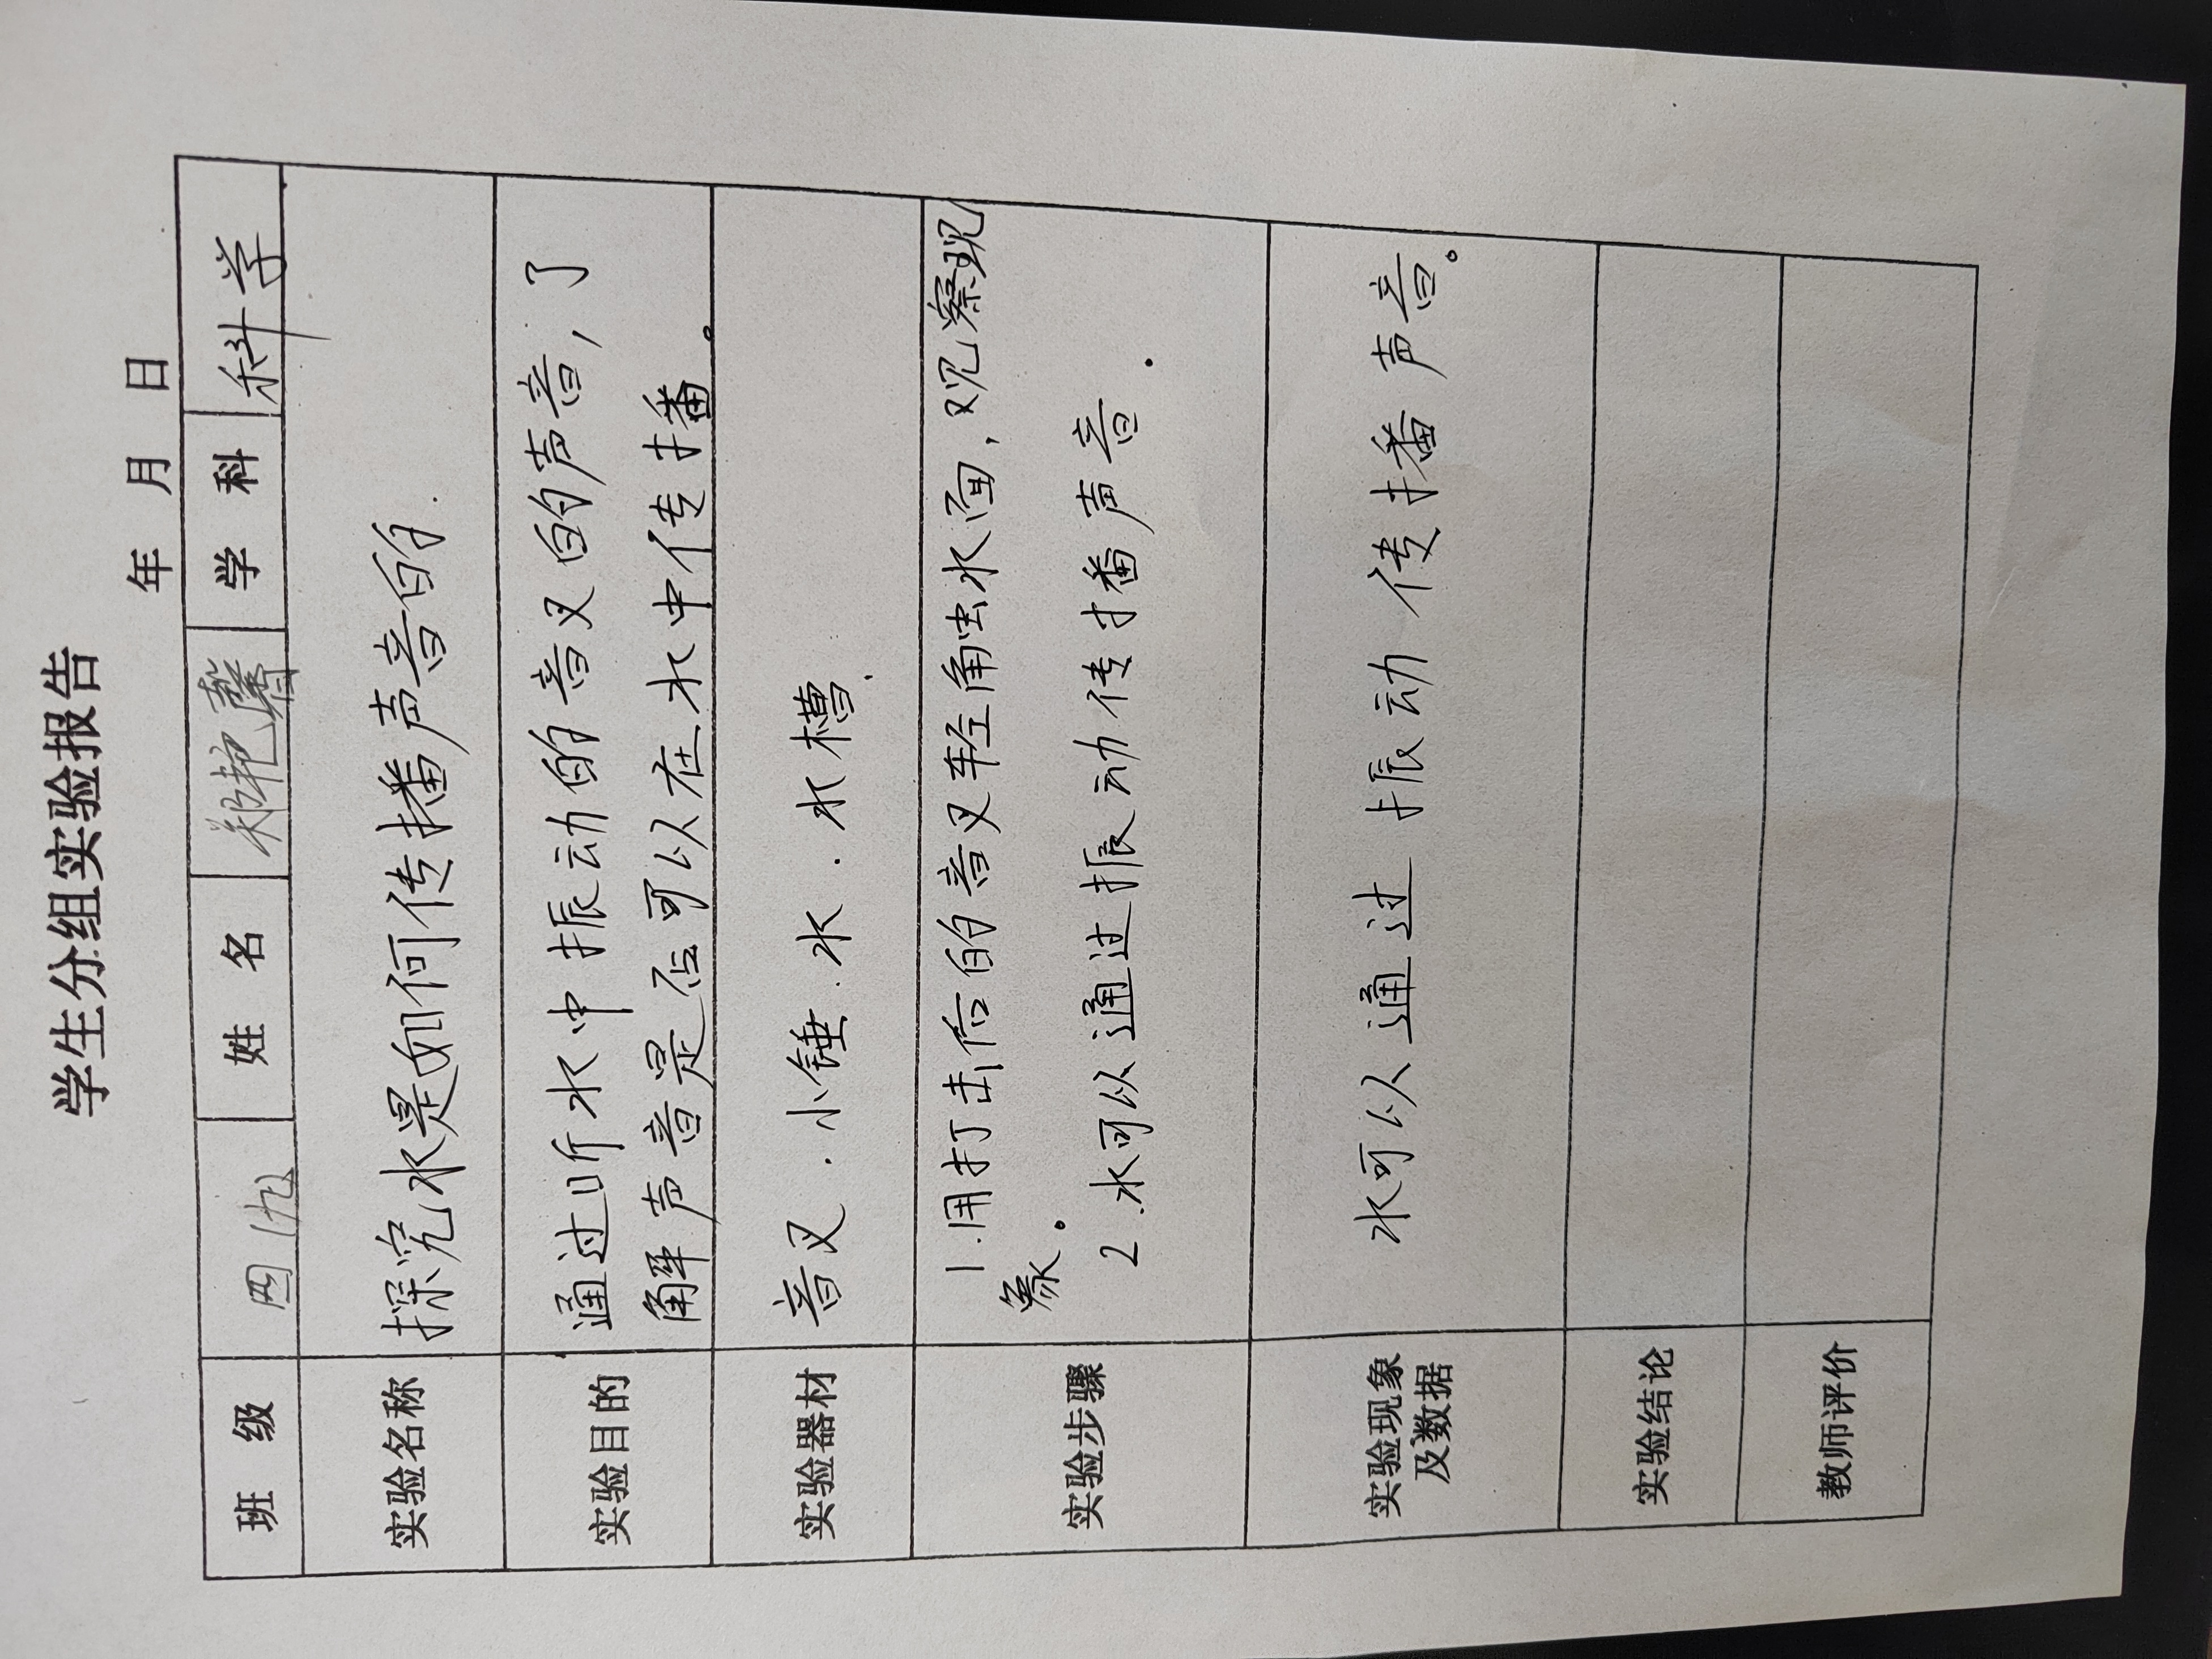 学生分组实验报告
年 月 日
班 级 四九 姓 名 郑艳馨 学 科 科学
实验名称 探究水是如何传播声音的.
实验目的 通过听水中振动的音叉的声音,了
解声音是否可以在水中传播。
实验器材 音叉.小锤.水.水槽.
实验步骤 1.用打击后的音叉轻触水面,观察现
象。
2.水可以通过振动传播声音.
实验现象
及数据 水可以通过振动传播声音。
实验结论
教师评价